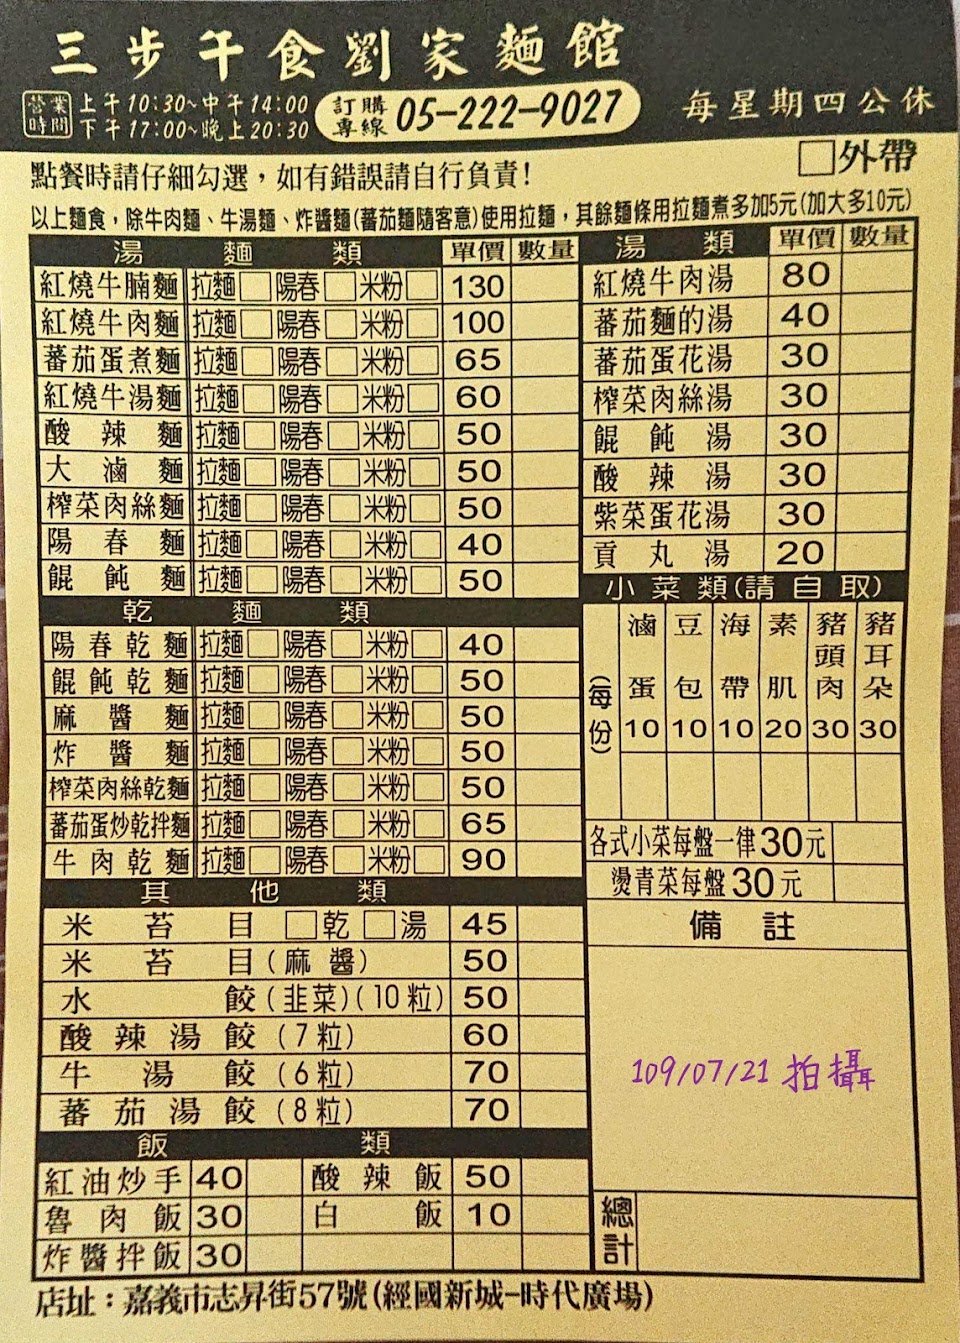 三步午食劉家麵館
營業時間 上午10:30~中午14:00
下午17:00~晚上20:30
訂購專線 05-222-9027
每星期四公休
□外帶
點餐時請仔細勾選，如有錯誤請自行負責!
以上麵食，除牛肉麵、牛湯麵、炸醬麵(蕃茄麵隨客意)使用拉麵，其餘麵條用拉麵煮多加5元(加大多10元)
湯麵類 單價 數量
紅燒牛腩麵 拉麵□ 陽春□ 米粉□ 130
紅燒牛肉麵 拉麵□ 陽春□ 米粉□ 100
蕃茄蛋煮麵 拉麵□ 陽春□ 米粉□ 65
紅燒牛湯麵 拉麵□ 陽春□ 米粉□ 60
酸辣麵 拉麵□ 陽春□ 米粉□ 50
大滷麵 拉麵□ 陽春□ 米粉□ 50
榨菜肉絲麵 拉麵□ 陽春□ 米粉□ 50
陽春麵 拉麵□ 陽春□ 米粉□ 40
餛飩麵 拉麵□ 陽春□ 米粉□ 50
乾麵類
陽春乾麵 拉麵□ 陽春□ 米粉□ 40
餛飩乾麵 拉麵□ 陽春□ 米粉□ 50
麻醬麵 拉麵□ 陽春□ 米粉□ 50
炸醬麵 拉麵□ 陽春□ 米粉□ 50
榨菜肉絲乾麵 拉麵□ 陽春□ 米粉□ 50
蕃茄蛋炒乾拌麵 拉麵□ 陽春□ 米粉□ 65
牛肉乾麵 拉麵□ 陽春□ 米粉□ 90
其他類
米苔目 □乾 □湯 45
米苔目(麻醬) 50
水餃(韭菜)(10粒) 50
酸辣湯餃(7粒) 60
牛湯餃(6粒) 70
蕃茄湯餃(8粒) 70
飯類
紅油炒手 40 酸辣飯 50
魯肉飯 30 白飯 10
炸醬拌飯 30
湯類 單價 數量
紅燒牛肉湯 80
蕃茄麵的湯 40
蕃茄蛋花湯 30
榨菜肉絲湯 30
餛飩湯 30
酸辣湯 30
紫菜蛋花湯 30
貢丸湯 20
小菜類(請自取)
(每份)
滷蛋 10
豆包 10
海帶 10
素肌 20
豬頭肉 30
豬耳朵 30
各式小菜每盤一律30元
燙青菜每盤30元
備註
109/07/21 拍攝
總計
店址：嘉義市志昇街57號(經國新城-時代廣場)